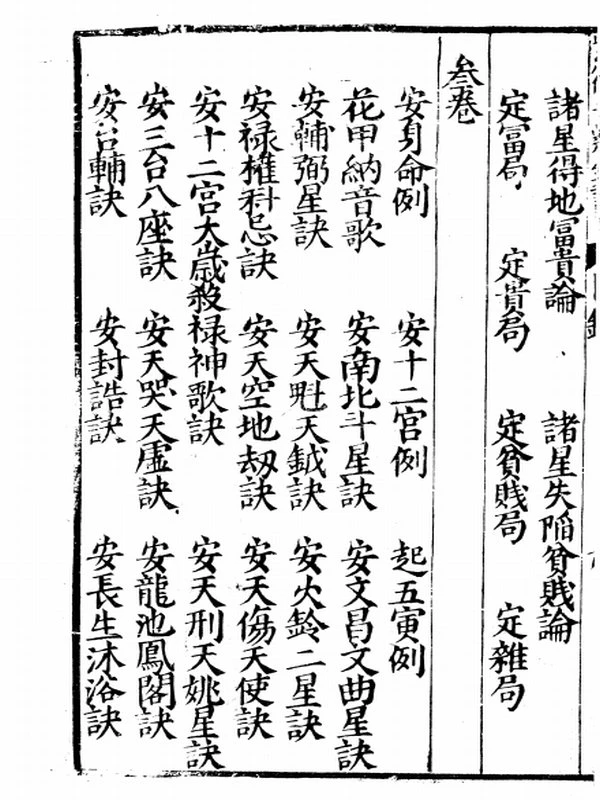 諸星得地富貴論 諸星失陷貧賤論
定富局 定貴局 定貧賤局 定雜局
叁卷
安身命例 安十二宮例 起五寅例
花甲納音歌 安南北斗星訣 安文昌文曲星訣
安輔弼星訣 安天魁天鉞訣 安火鈴二星訣
安祿權科忌訣 安天空地刼訣 安天傷天使訣
安十二宮太歲殺祿神歌訣 安天刑天姚星訣
安三台八座訣 安天哭天虛訣 安龍池鳳閣訣
安台輔訣 安封誥訣 安長生沐浴訣